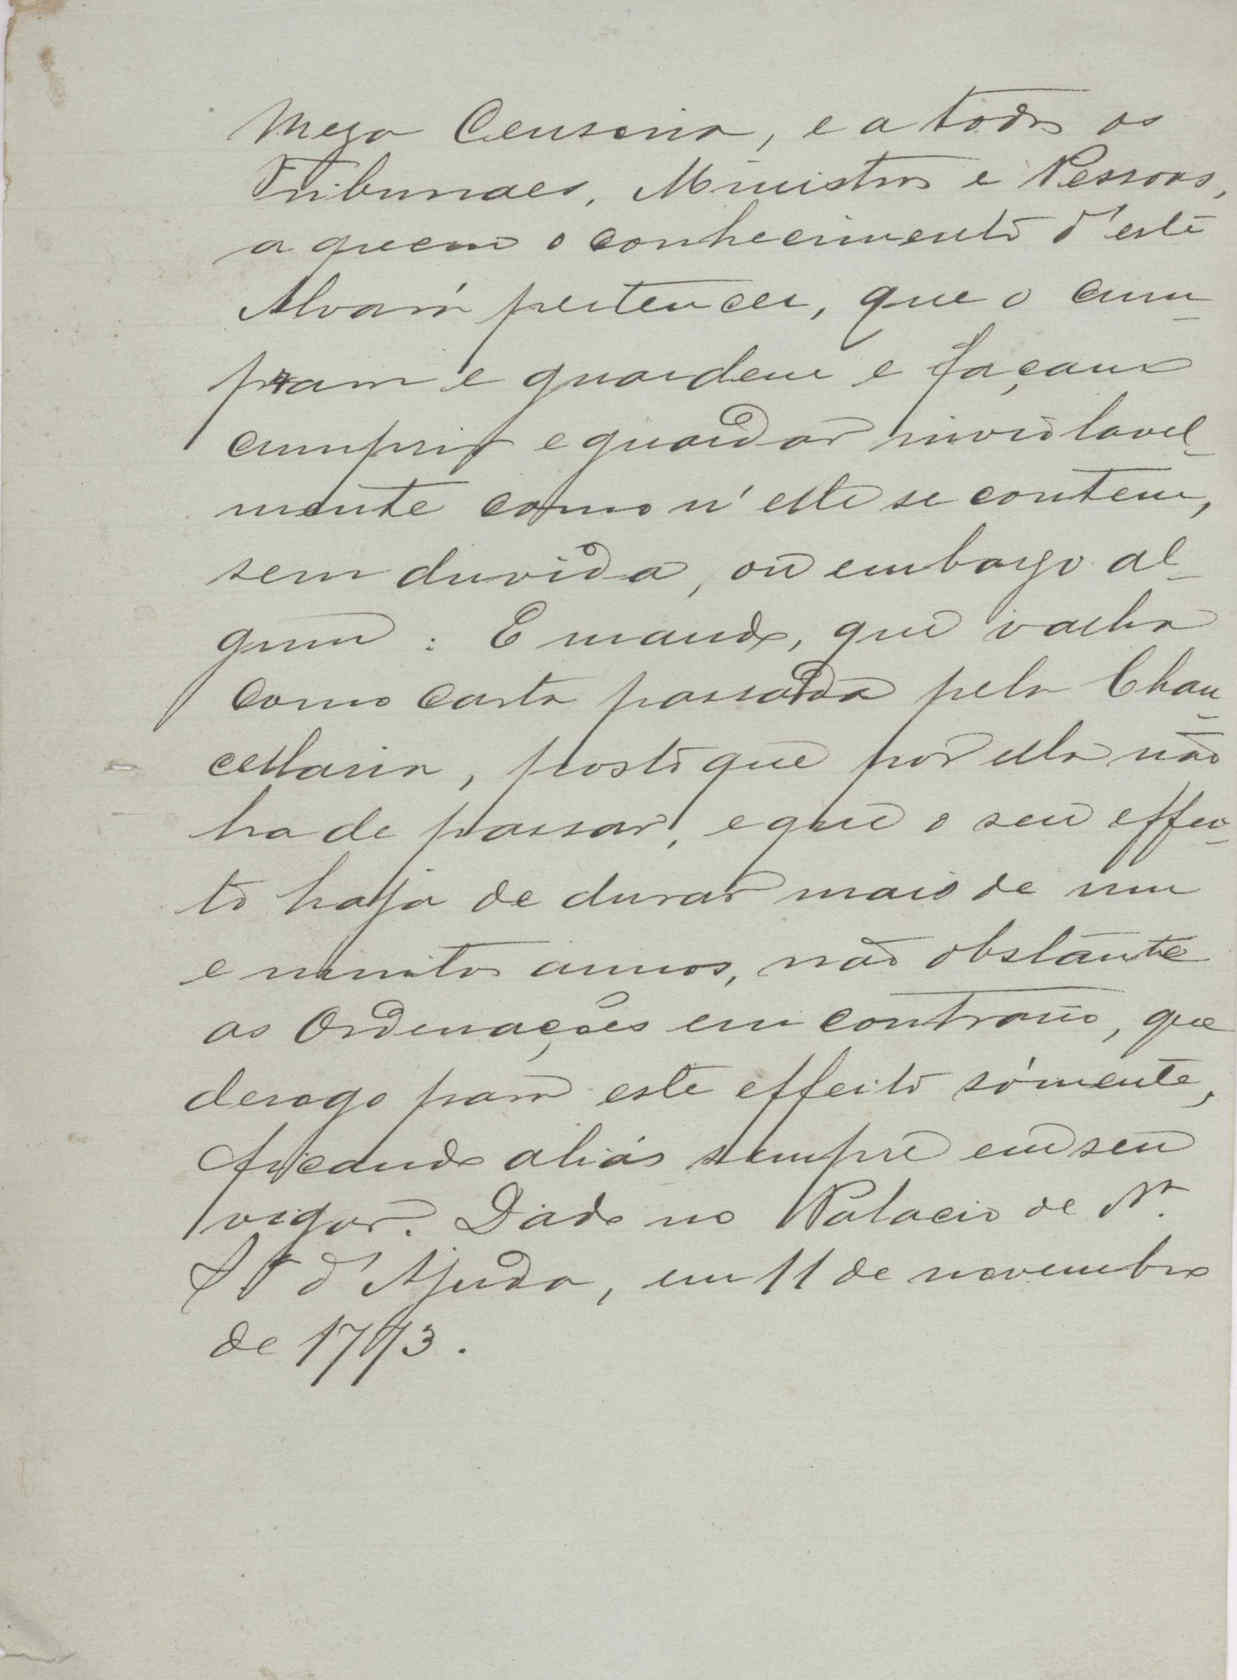 Meza Censoria, e a todos os
Tribunaes, Ministros e Pessoas,
a quem o conhecimento d'este
Alvará pertencer, que o cum-
pram e guardem e façam
cumprir e guardar inviolavel-
mente como n'elle se contem,
sem duvida, ou embargo al-
gum : E mando, que valha
como carta passada pela Chan-
cellaria, posto que por ella não
ha de passar, e que o seu effei-
to haja de durar mais de um
e muitos annos, não obstante
as Ordenações em contrario, que
derogo para este effeito sómente,
ficando aliás sempre em seu
vigor. Dado no Palacio de Nª.
Sª d'Ajuda, em 11 de novembro
de 1773.